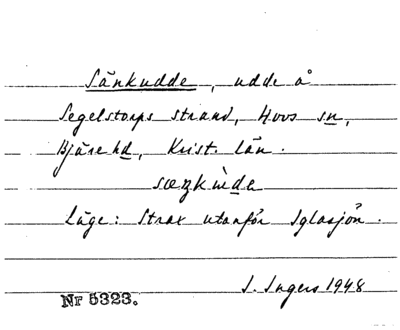 Sänkudde, udde å
Segelstorps strand, Hovs sn,
Bjäre hd, Krist. län.
Läge: Strax utanför Iglasjön.
I. Ingers 1948
Nr 5323.